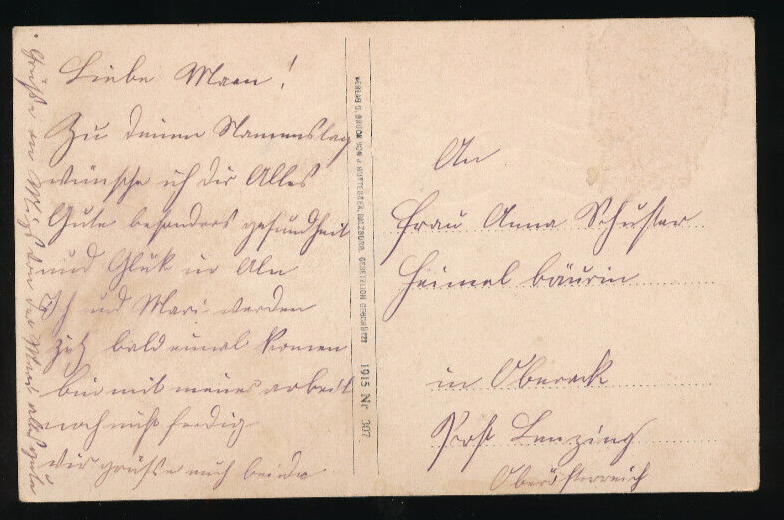 Liebe Mam!
Zu deinen Namenstag
wünsche ich dir Alles
Gute besonders gesundheit
und Glük in Aln
Ich und Mari werden
bald einmal komen
bin mit meiner arbeit
noch nicht fertig
wir grüße euch beide
Grüße an
VERLAG U. DRUCK VON SALZBURG. GESETZLICH GESCHÜTZT 1915 Nr 307
An
Frau Anna Schuster
Heimel bäurin
in Oberack
Post Lenzing
Oberösterreich